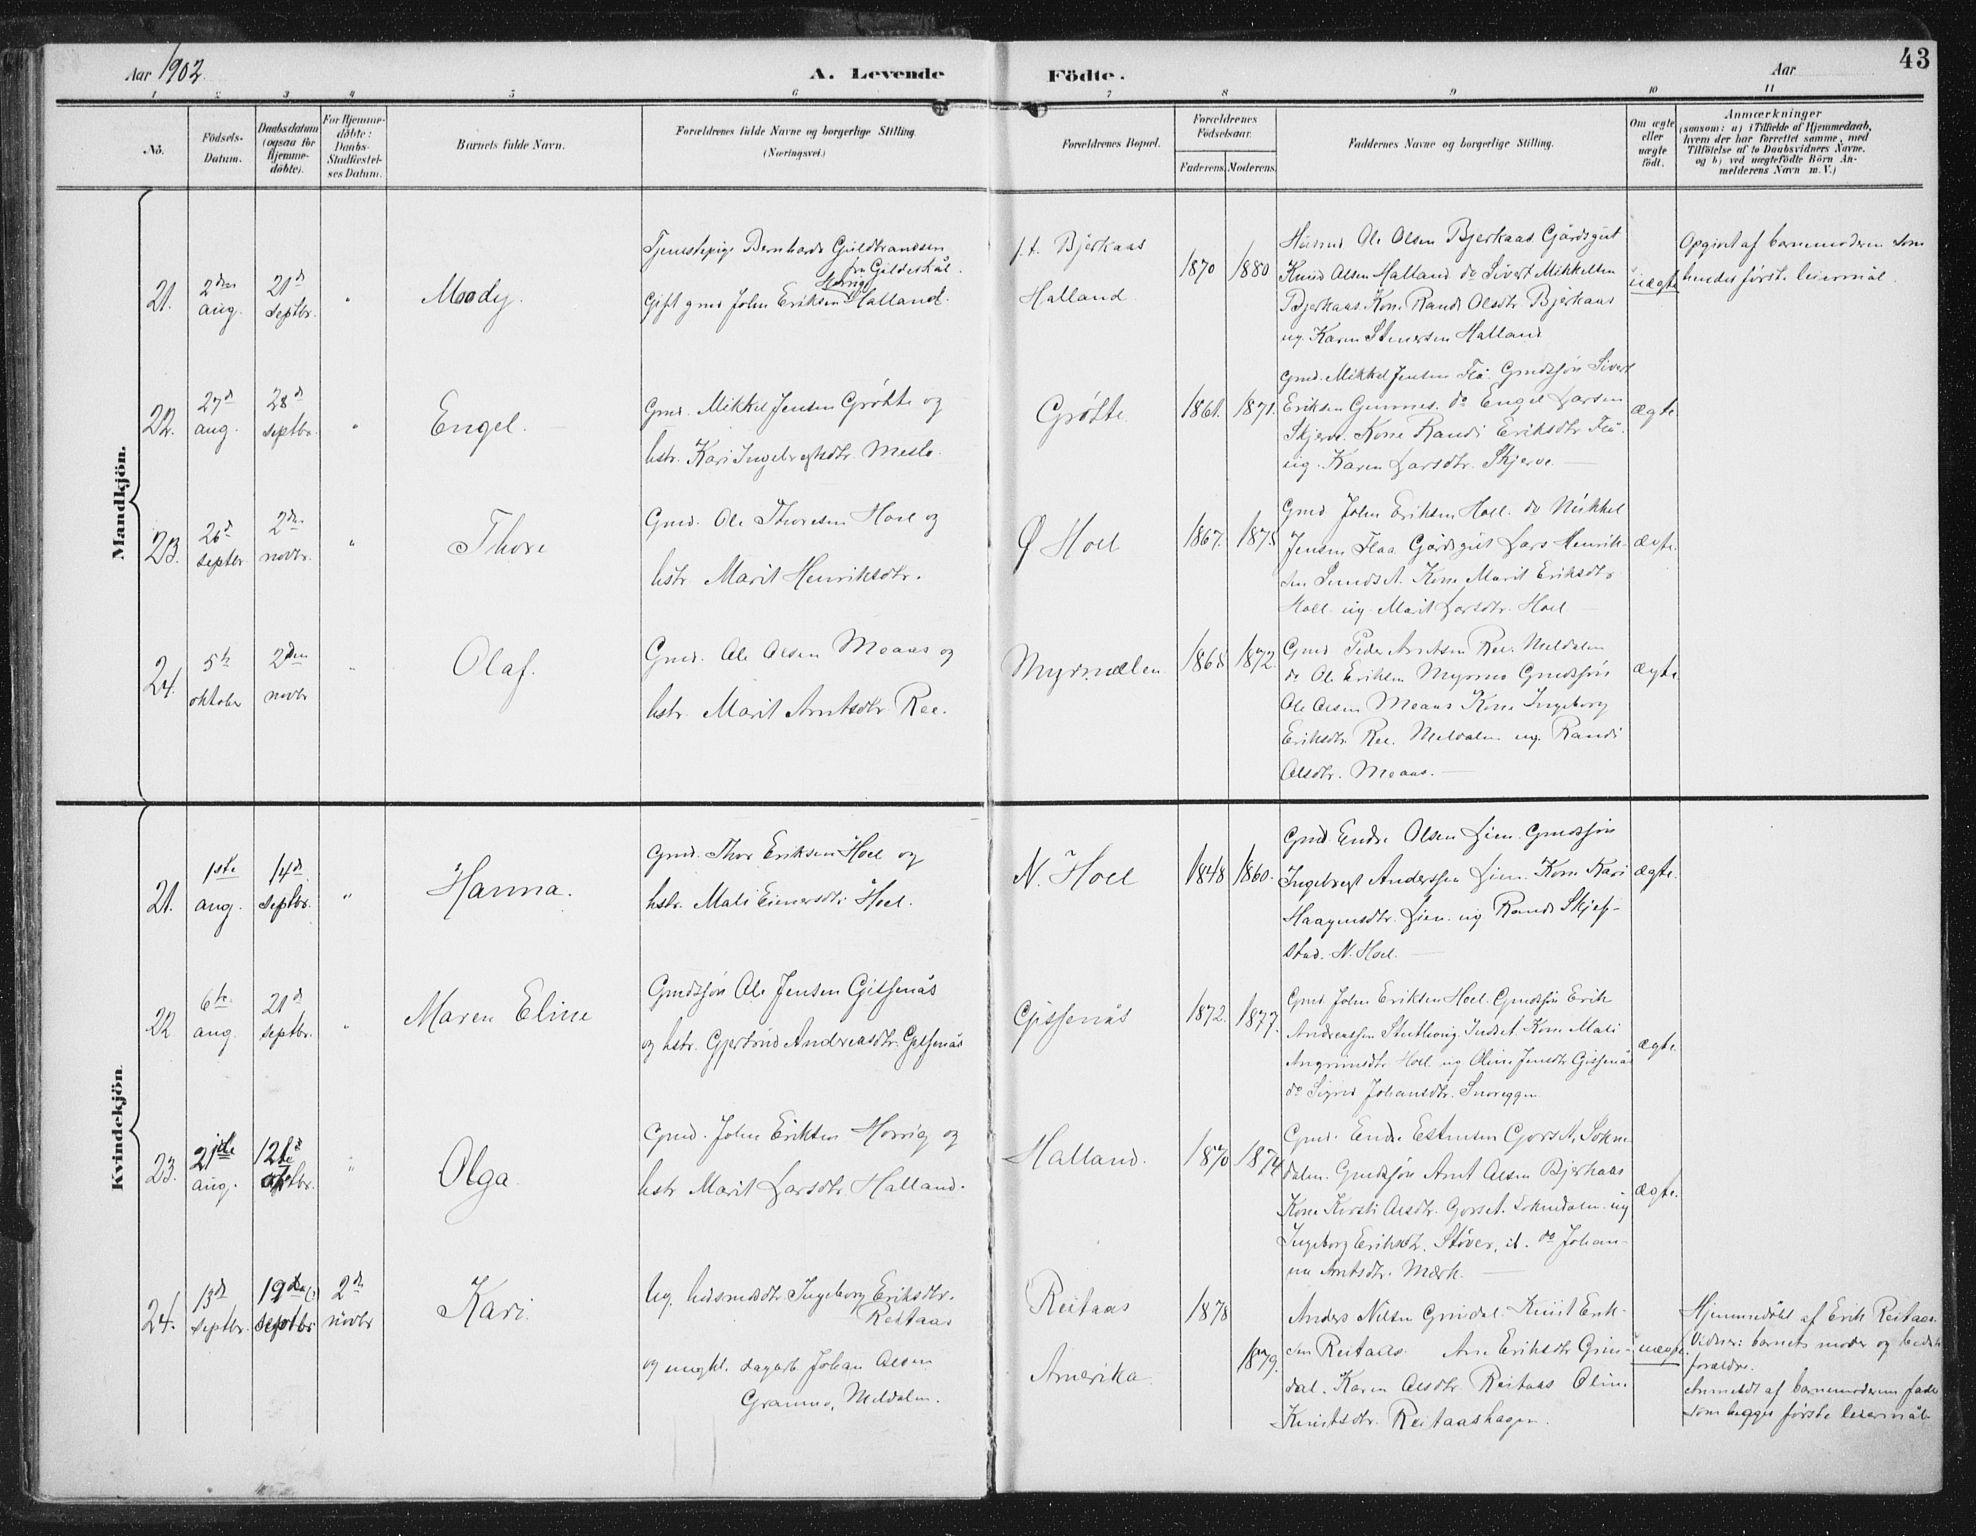 Aar 1902
A. Levende
Födte.
Aar
43
1 2 3 4 5 6 7 8 9 10 11
No.
Födsels-
Datum.
Daabsdatum
(ogsaa for
Hjemme-
döbte).
For Hjemme-
döbte:
Daabs-
Stadfæstel-
ses Datum.
Barnets fulde Navn.
Forældrenes fulde Navne og borgerlige Stilling.
(Næringsvei.)
Forældrenes Bopæl.
Forældrenes
Födselsaar.
Faderens. Moderens.
Faddernes Navne og borgerlige Stilling.
Om ægte
eller
uægte
født.
Anmærkninger
(saasom: a) i Tilfælde af Hjemmedaab,
hvem der har forrettet samme, med
Tilföielse af to Daabsvidners Navne,
og b) ved uægtefödte Börn An-
melderens Navn m. V.)
Mandkjön.
21.
2den
aug.
21d
septbr.
"
Moody.
Tjenestepige Bernharda Guldbrandsen
fra Gildeskål.
Gift gmd John Eriksen Horrig Halland.
f.t. Bjerkaas
Halland.
1870
1880
Husmd Ole Olsen Bjerkaas Gårdsgut
Knud Olsen Halland do Sivert Mikkelsen
Bjerkaas. Kone Randi Olsdtr. Bjerkaas
ug. Karen Stenersen Halland
uægte
Opgivet af barnemoderen som
hendes første leiermål.
22.
27d
aug.
28d
septbr.
"
Engel.
Gmd. Mikkel Jensen Grøtte og
hstr. Kari Ingebrigtsdtr. Meslo.
Grøtte
1861.
1871.
Gmd. Mikkel Jensen Flå. Gmdsøn Sivert
Eriksen Gunnes. do Engel Larsen
Skjerve. Kone Randi Eriksdtr Flå.
ug. Karen Larsdtr. Skjerve.
ægte.
23.
26d
septbr
2den
novbr.
"
Thore
Gmd. Ole Thoresen Hoel og
hstr Marit Henriksdtr.
Ø Hoel
1867.
1875
Gmd John Eriksen Hoel. do Mikkel
Jensen Flaa Gårdsgut Lars Henrik-
sen Sundset. Kone Marit Eriksdtr
Hoel. ug. Marit Larsdtr. Hoel
ægte.
24.
5te
oktober
2den
novbr
"
Olaf.
Gmd. Ole Olsen Moaas og
hstr. Marit Arntsdtr Ree.
Myrmælen
1865
1872.
Gmd Peder Arntsen Ree. Meldalen
do Ole Eriksen Myrmo Gmdsøn
Ole Olsen Moaas Kone Ingeborg
Eriksdtr. Ree. Meldalen ug. Randi
Olsdtr. Moaas.
ægte
Kvindekjön
21.
1ste
aug.
14d
septbr.
"
Hanna.
Gmd. Thor Eriksen Hoel og
hstr. Mali Einersdtr Hoel.
N. Hoel
1848
1860.
Gmd. Endre Olsen Lien. Gmdsøn
Ingebrigt Anderssen Lien. Kone Kari
Haagensdtr. Lien. ug Randi Skjef-
stad. N. Hoel.
ægte.
22
6te
aug.
21d
septbr.
"
Maren Eline
Gmdsøn Ole Jensen Gissenås
og hstr. Gjertrud Andreasdtr. Gissenås
Gissenås
1872.
1877.
Gmd. John Eriksen Hoel. Gmdsøn Erik
Andreassen Indset. Kone Mali
Angrimsdtr Hoel. ug Oline Jensdtr Gissenås
do Sigrid Johansdtr. Snoreggen
ægte.
23.
21de
aug.
12te
otbr.
"
Olga
Gmd. John Eriksen Horrig og
hstr Marit Larsdtr. Halland.
Halland.
1870
1874
Gmd. Endre Estensen Gorset, Sokne-
dalen. Gmdsøn Arnt Olsen Bjerkaas
Kone Kirsti Olsdtr. Gorset. Soknedalen. ug
Ingeborg Eriksdtr. Støver, do Johan-
na Arntsdtr. Mærk.
ægte.
24.
13d
septbr.
19de
septbr
2den
novbr
Kari.
Ug. husmdsdtr. Ingeborg Eriksdtr.
Reitaas
og ungkl. dagarb. Johan Olsen
Gramno, Meldalen.
Reitaas
Amerika.
1878
1879.
Anders Nilsen Grindal. Knut Erik-
sen Reitaas. Ane Eriksdtr Grin-
dal. Karen Olsdtr Reitaas Oline
Knutsdtr. Reitaashagen.
uægte.
Hjemmedøbt af Erik Reitaas.
Vidner: barnets moder og bedste-
forældre.
Anmeldt af barnemoderens fader
som begges første leiermål.